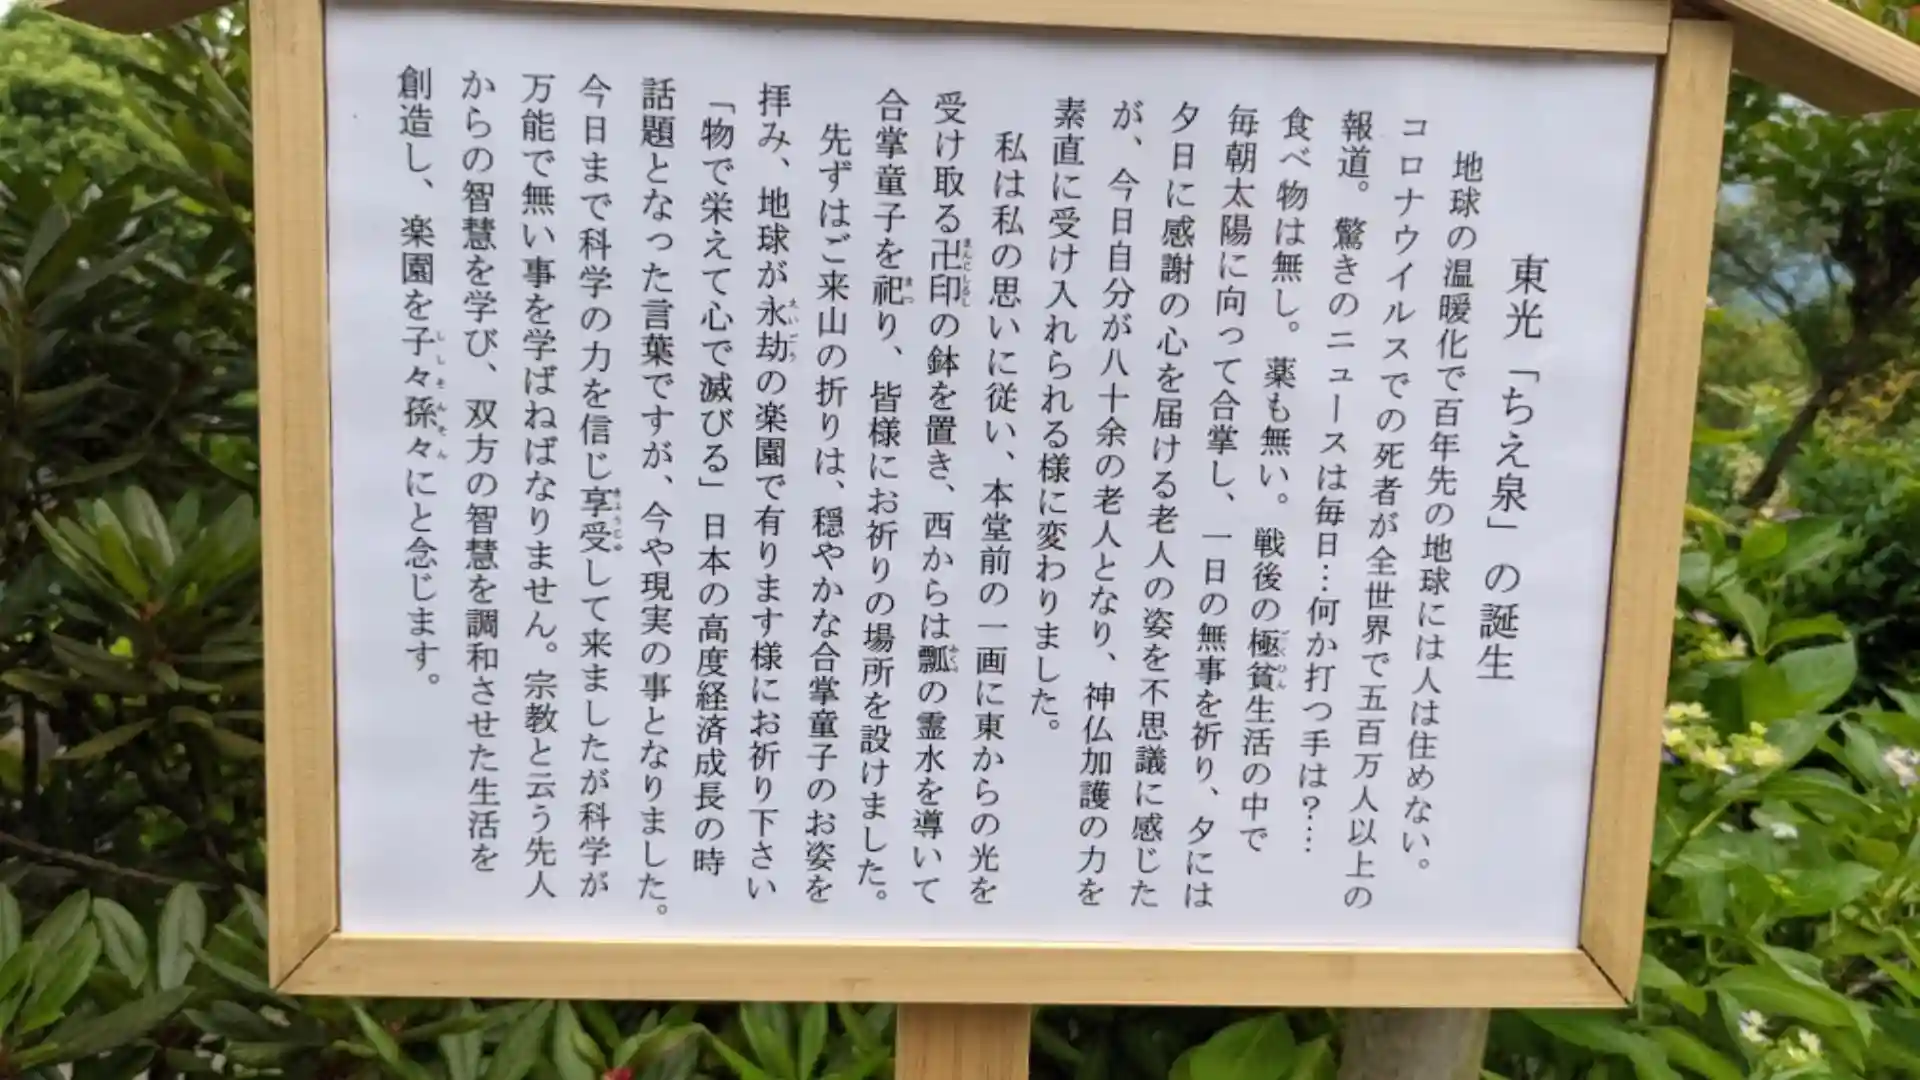 東光「ちえ泉」の誕生
地球の温暖化で百年先の地球には人は住めない。
コロナウイルスでの死者が全世界で五百万人以上の
報道。驚きのニュースは毎日…何か打つ手は？…
食べ物は無し。薬も無い。戦後の極貧生活の中で
毎朝太陽に向って合掌し、一日の無事を祈り、夕には
夕日に感謝の心を届ける老人の姿を不思議に感じた
が、今日自分が八十余の老人となり、神仏加護の力を
素直に受け入れられる様に変わりました。
私は私の思いに従い、本堂前の一画に東からの光を
受け取る卍印の鉢を置き、西からは瓢の霊水を導いて
合掌童子を祀り、皆様にお祈りの場所を設けました。
先ずはご来山の折りは、穏やかな合掌童子のお姿を
拝み、地球が永劫の楽園で有ります様にお祈り下さい
「物で栄えて心で滅びる」日本の高度経済成長の時
話題となった言葉ですが、今や現実の事となりました。
今日まで科学の力を信じ享受して来ましたが科学が
万能で無い事を学ばねばなりません。宗教と云う先人
からの智慧を学び、双方の智慧を調和させた生活を
創造し、楽園を子々孫々にと念じます。